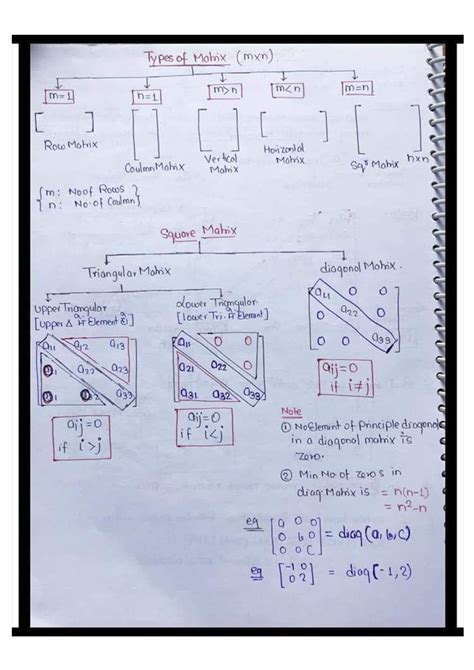 Types of Matrix (m×n)
m=1 n=1 m>n m<n m=n
Row Matrix
Coulmn Matrix
Vertical Matrix
Horizontal Matrix
Sqr Matrix n×n
{ m: No of Rows }
{ n: No. of Coulmn }
Square Matrix
Triangular Matrix
diagonal Matrix.
Upper Triangular
[upper Δ Element]
Lower Triangular
[lower Tri. Element]
a11 a12 a13
a22 a23
a33
aij=0
if i>j
a11 0 0
a21 a22 0
a31 a32 a33
aij=0
if i<j
a11 0 0
0 a22 0
0 0 a33
aij=0
if i≠j
Note
① No Element of Principle diagonal
in a diagonal matrix is
zero.
② Min No of zeros in
diag. Matrix is = n(n-1)
= n²-n
eg [0 0 0
0 b 0
0 0 C] = diag(a, b, C)
eg [-1 0
0 2] = diag(-1, 2)